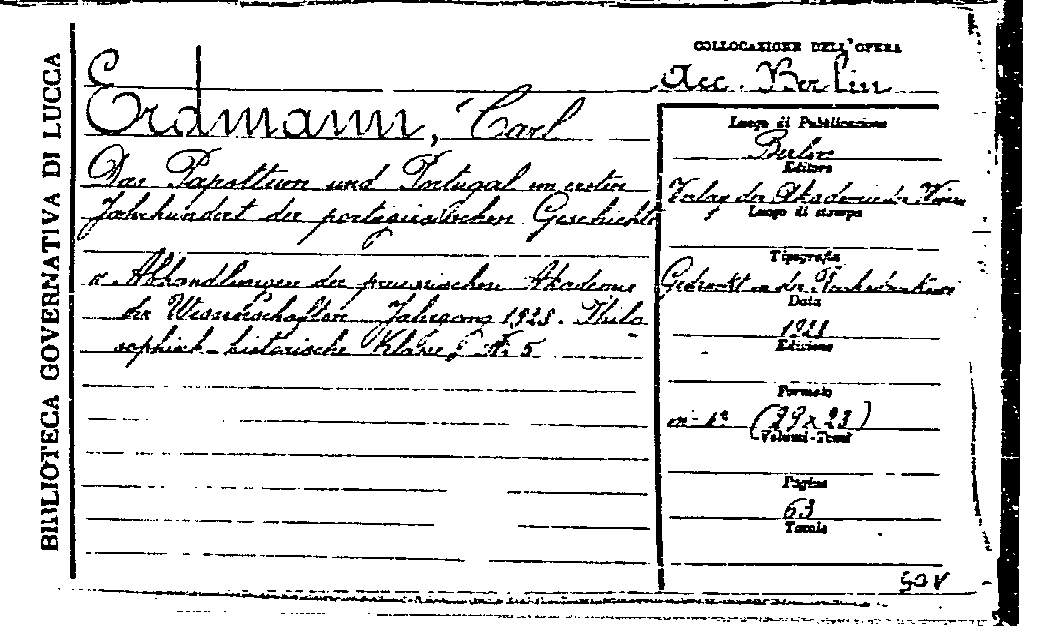 BIBLIOTECA GOVERNATIVA DI LUCCA
COLLOCAZIONE DELL'OPERA
Acc. Berlin
E
Erdmann, Carl
Das Papsttum und Portugal im ersten
Jahrhundert der portugiesischen Geschichte
Abhandlungen der preussischen Akademie
der Wissenschaften Jahrgang 1928. Philo
sophisch-historische Klasse N. 5
Luogo di Pubblicazione
Berlin
Editore
Verlag der Akademie der Wissen
Luogo di stampa
Tipografia
Gedruckt in der Reichsdruckerei
Data
1928
Edizione
Formato
in-4° (29x23)
Volumi-Tomi
Pagine
63
Tavole